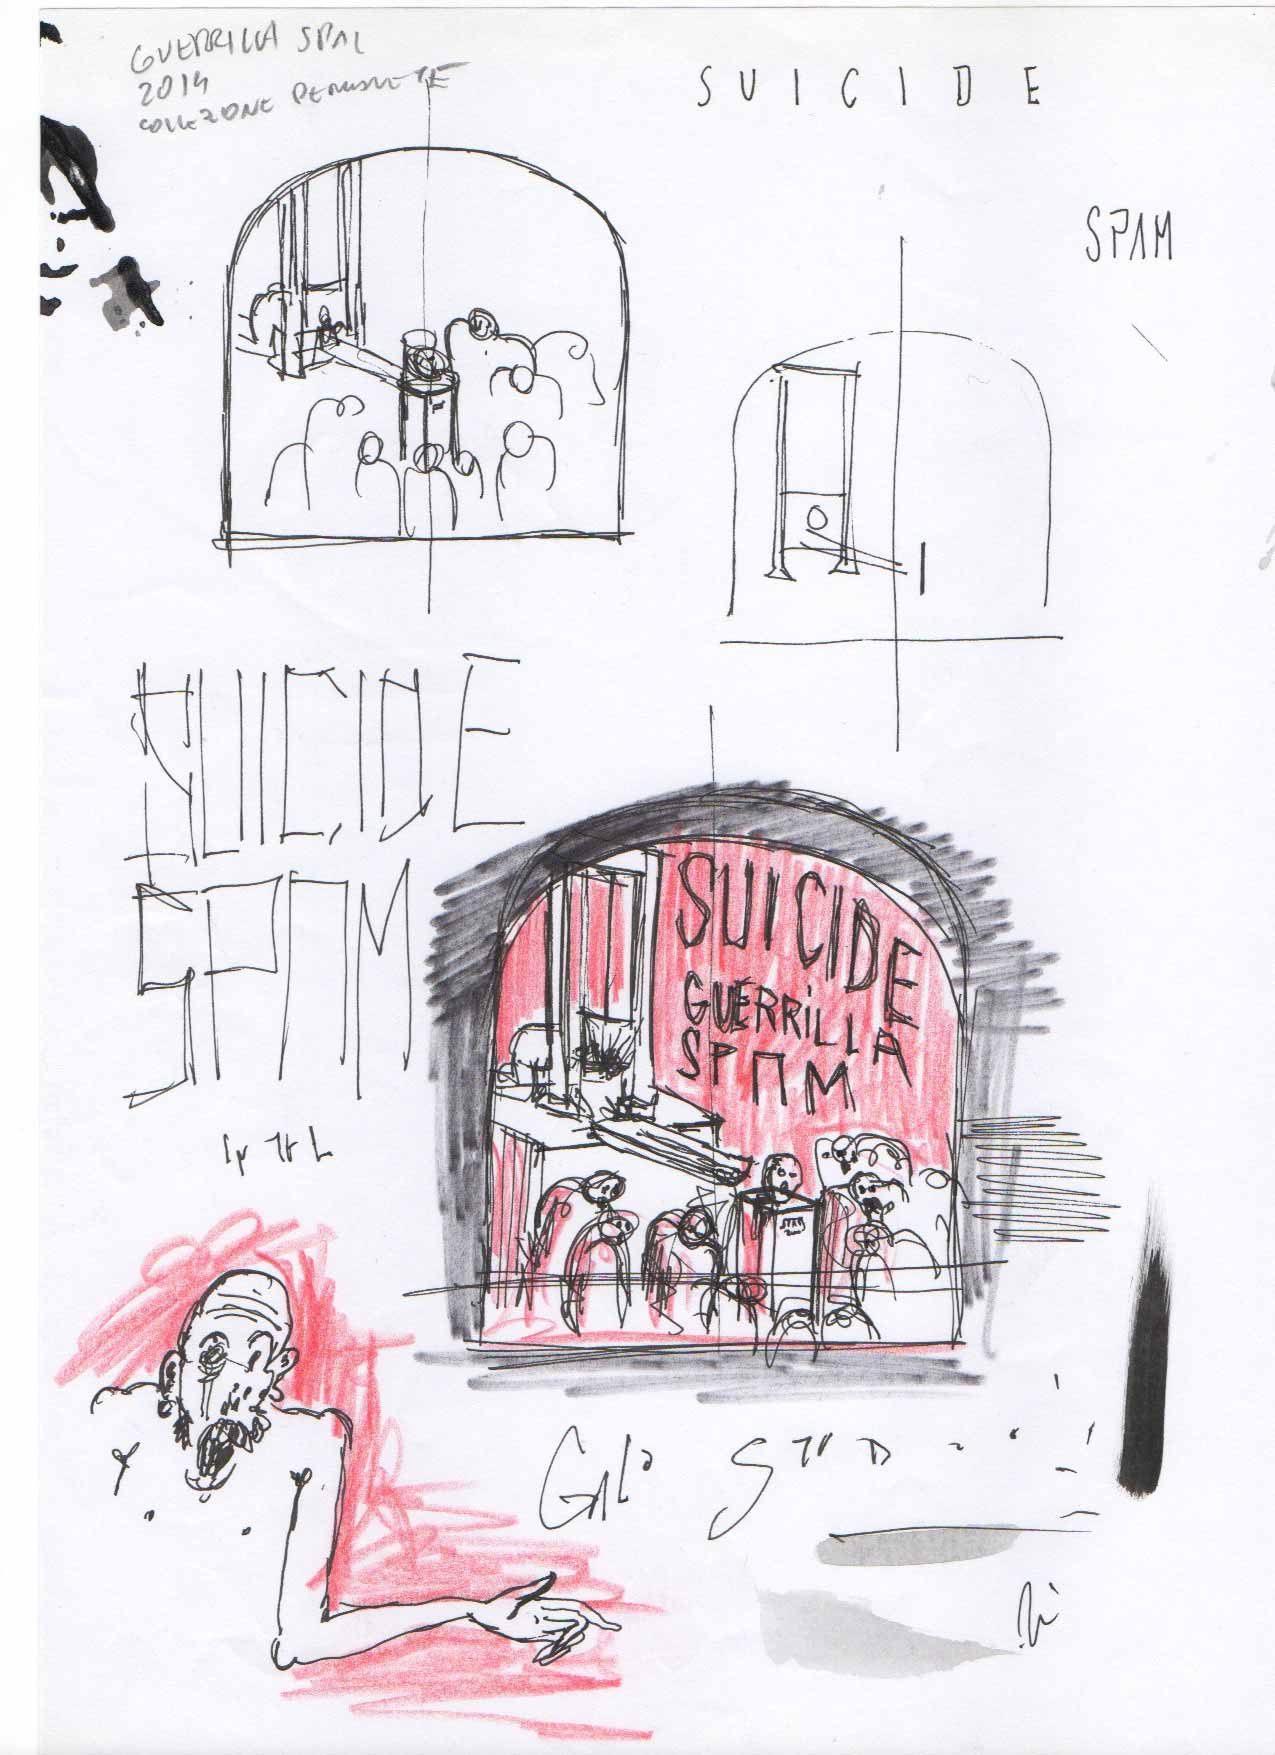 GUERRILLA SPAL
2014
COLLEZIONE PERMANENTE
SUICIDE
SPAM
SUICIDE
SPAM
SUICIDE
GUERRILLA
SPAM
SPAM